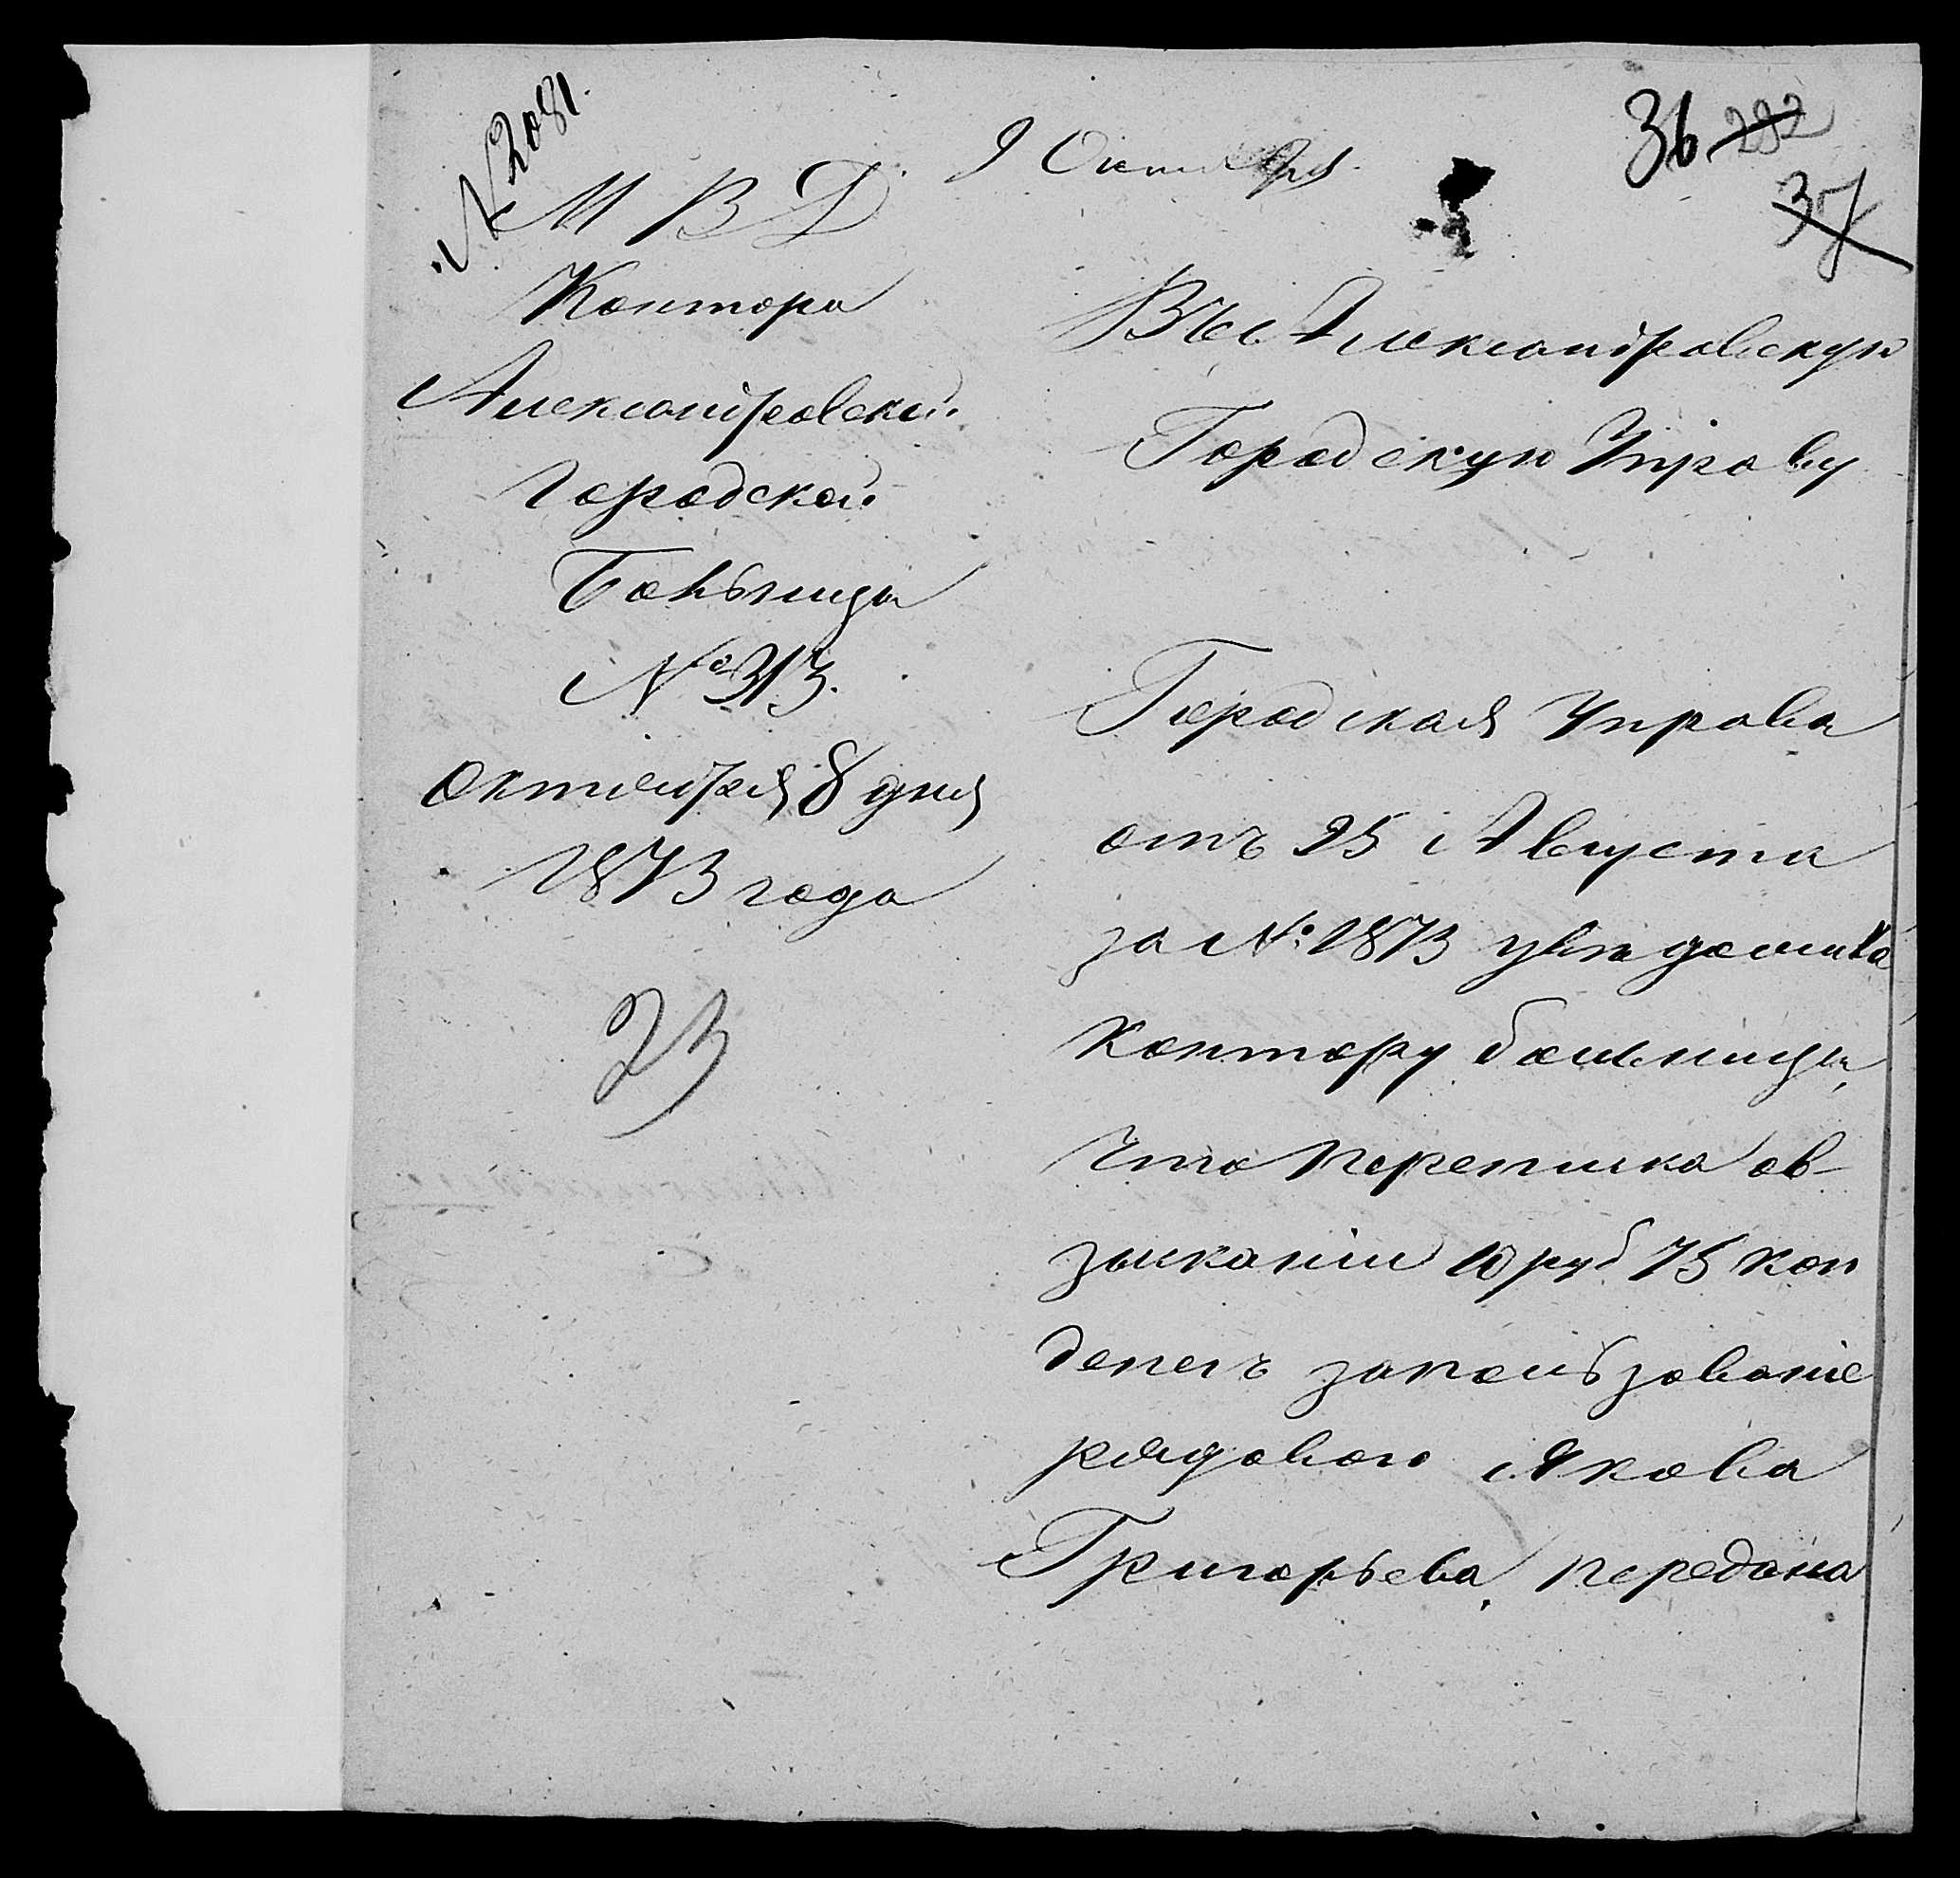 № 2081.
9 Октября.
36 292
37
М В Д
Контора
Александровской
Городской
Больницы
№ 313.
Октября 8 дня
1873 года
23
Въ Александровскую
Городскую Управу
Городская Управа
отъ 25 Августа
за №: 1873 увѣдомила
Контору больницы,
что переписка овзысканіи 10 руб 75 коп
денегъ запользованіе
рядового Якова
Григорьева, передана